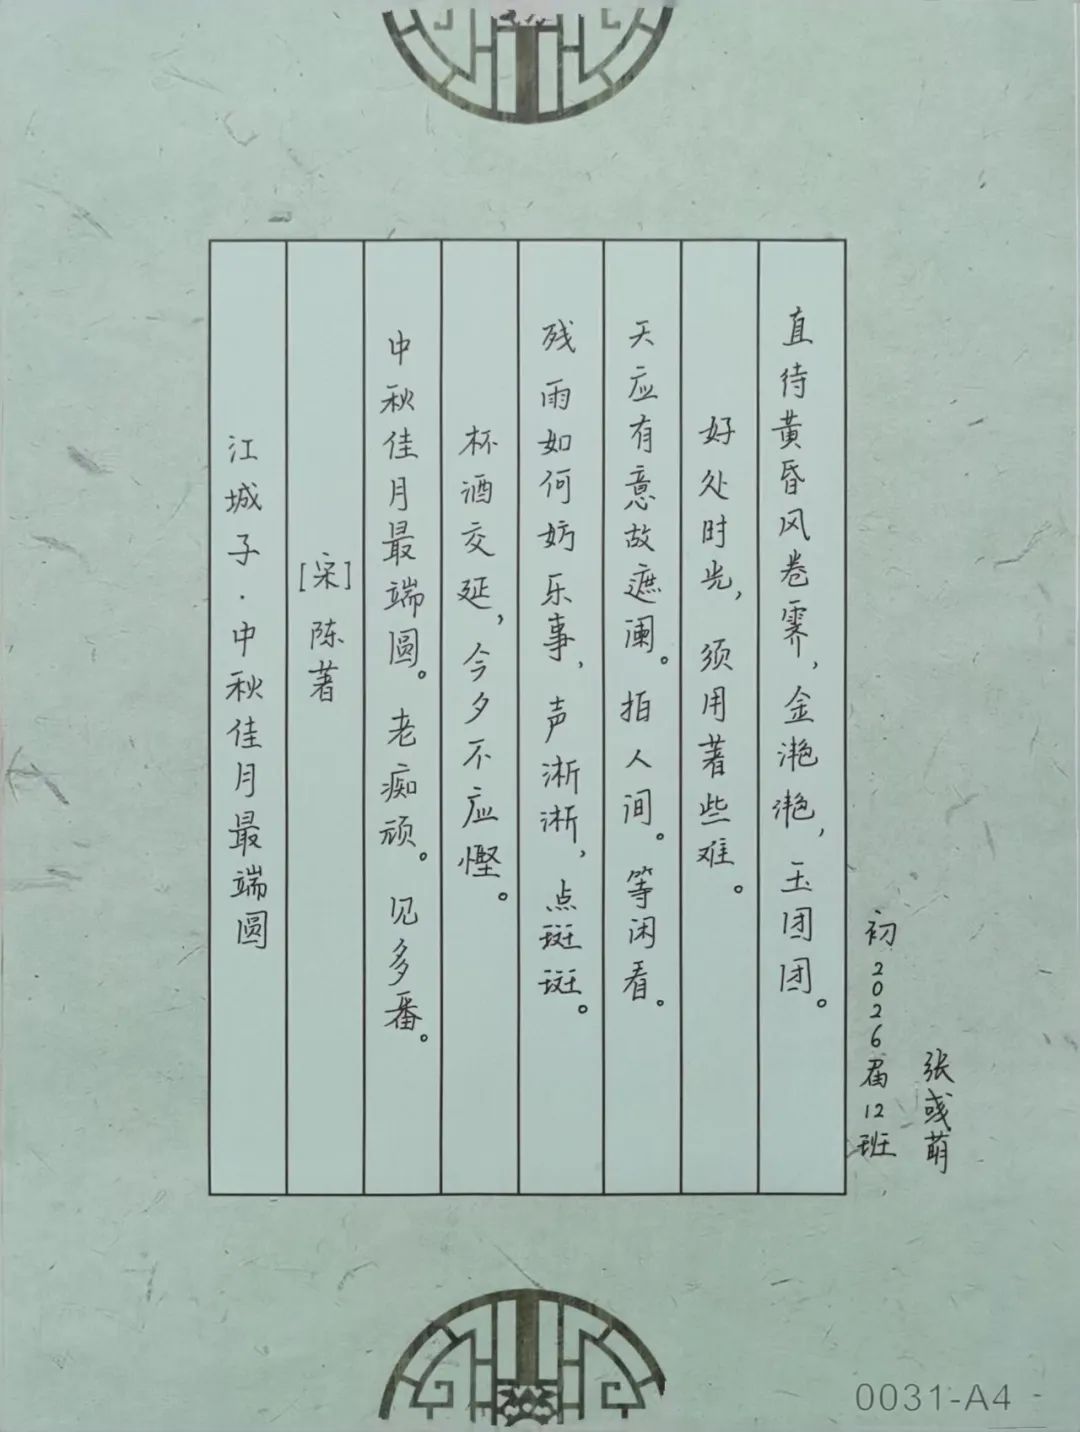 江城子·中秋佳月最端圆
[宋]陈著
中秋佳月最端圆。老痴顽。见多番。
杯酒交延，今夕不应悭。
残雨如何妨乐事，声淅淅，点斑斑。
天应有意故遮阑。拍人间。等闲看。
好处时光，须用著些难。
直待黄昏风卷霁，金滟滟，玉团团。
初2026届12班
张彧萌
0031-A4